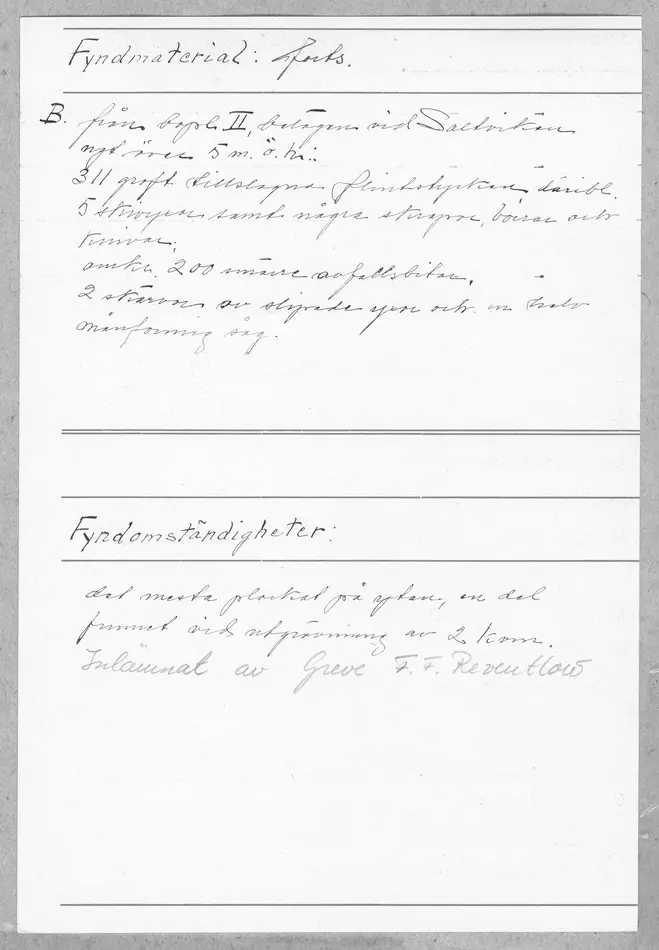 Fyndmaterial: forts.
B. från bopl. II, belägen vid Saltviken
ngt över 5 m. ö. h.:
311 groft tillslagna flintstycken, däribl.
5 skivyxor samt några skrapor, borrar och
knivar.
omkr. 200 smärre avfallsbitar.
2 skärvor av slipade yxor och en halv
månformig såg.
Fyndomständigheter:
det mesta plockat på ytan, en del
funnet vid utgrävning av 2 kvm.
Inlämnat av Greve F. F. Reventlow